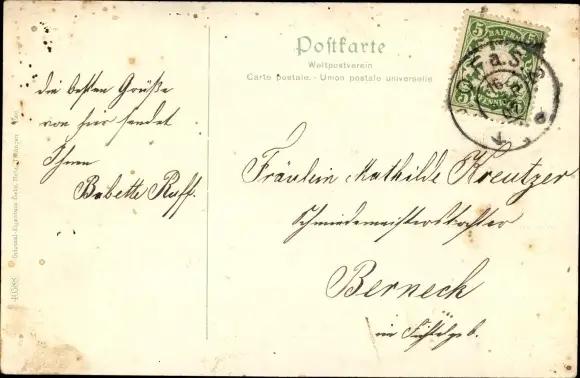 Postkarte
Weltpostverein
Carte postale. - Union postale universelle
5 BAYERN 5
PFENNIG
HOF a. S.
die besten Grüße
von hier sendet
Ihnen
Babette Ruff.
Fräulein Mathilde Kreutzer
Schmiedemeisterstochter
Berneck
im Fichtelgeb.